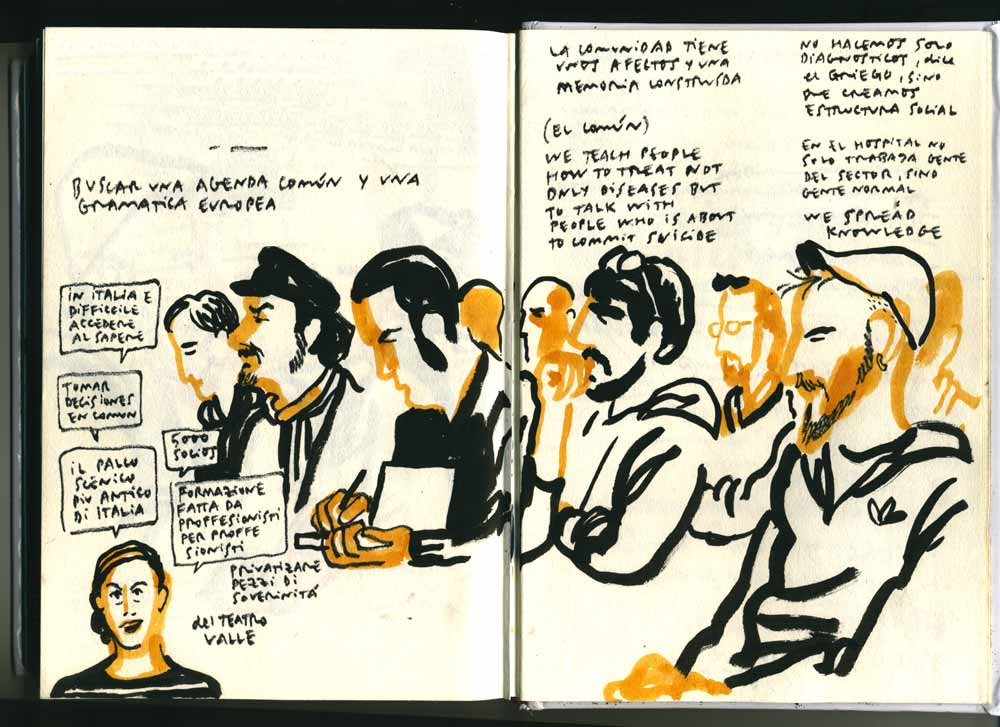 BUSCAR UNA AGENDA COMÚN Y UNA
GRAMATICA EUROPEA
IN ITALIA E
DIFFICILE
ACCEDERE
AL SAPERE
TOMAR
DECISIONES
EN COMUN
IL PALLO
SCENICO
PIU ANTICO
DI ITALIA
5000
SOLIOS
FORMAZIONE
FATTA DA
PROFFESIONISTI
PER PROFFE
SIONISTI
PRIVATIZARE
PEZZI DI
SOVERINITÁ
del TEATRO
VALLE
LA COMUNIDAD TIENE
UNOS AFECTOS Y UNA
MEMORIA CONSTRUIDA
(EL COMÚN)
WE TEACH PEOPLE
HOW TO TREAT NOT
ONLY DISEASES BUT
TO TALK WITH
PEOPLE WHO IS ABOUT
TO COMMIT SUICIDE
NO HACEMOS SOLO
DIAGNOSTICOS, dice
el GRIEGO, SINO
QUE CREAMOS
ESTRUCTURA SOCIAL
EN EL HOSPITAL NO
SOLO TRABAJA GENTE
DEL SECTOR, SINO
GENTE NORMAL
WE SPREAD
KNOWLEDGE